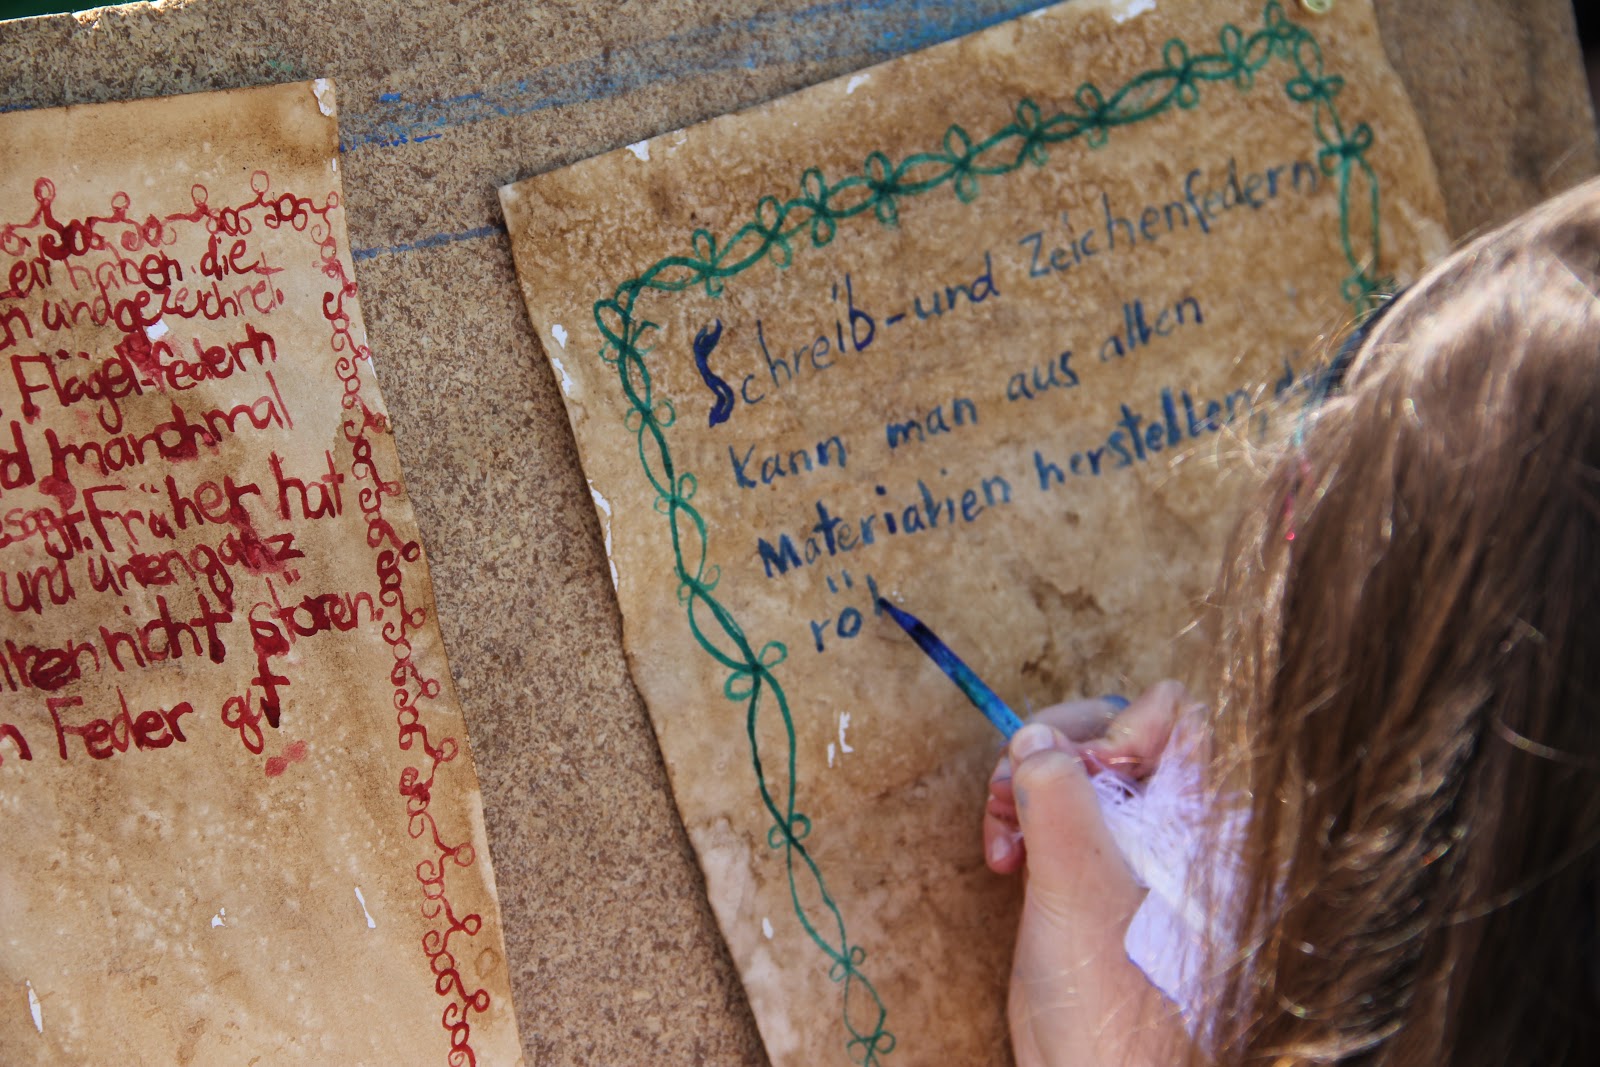 haben die
und gezeichnet.
Flügel-federn
manchmal
Früher hat
und unten ganz
nicht stören.
Feder gut
Schreib-und Zeichenfedern
Kann man aus allen
Materialien herstellen, die
röh